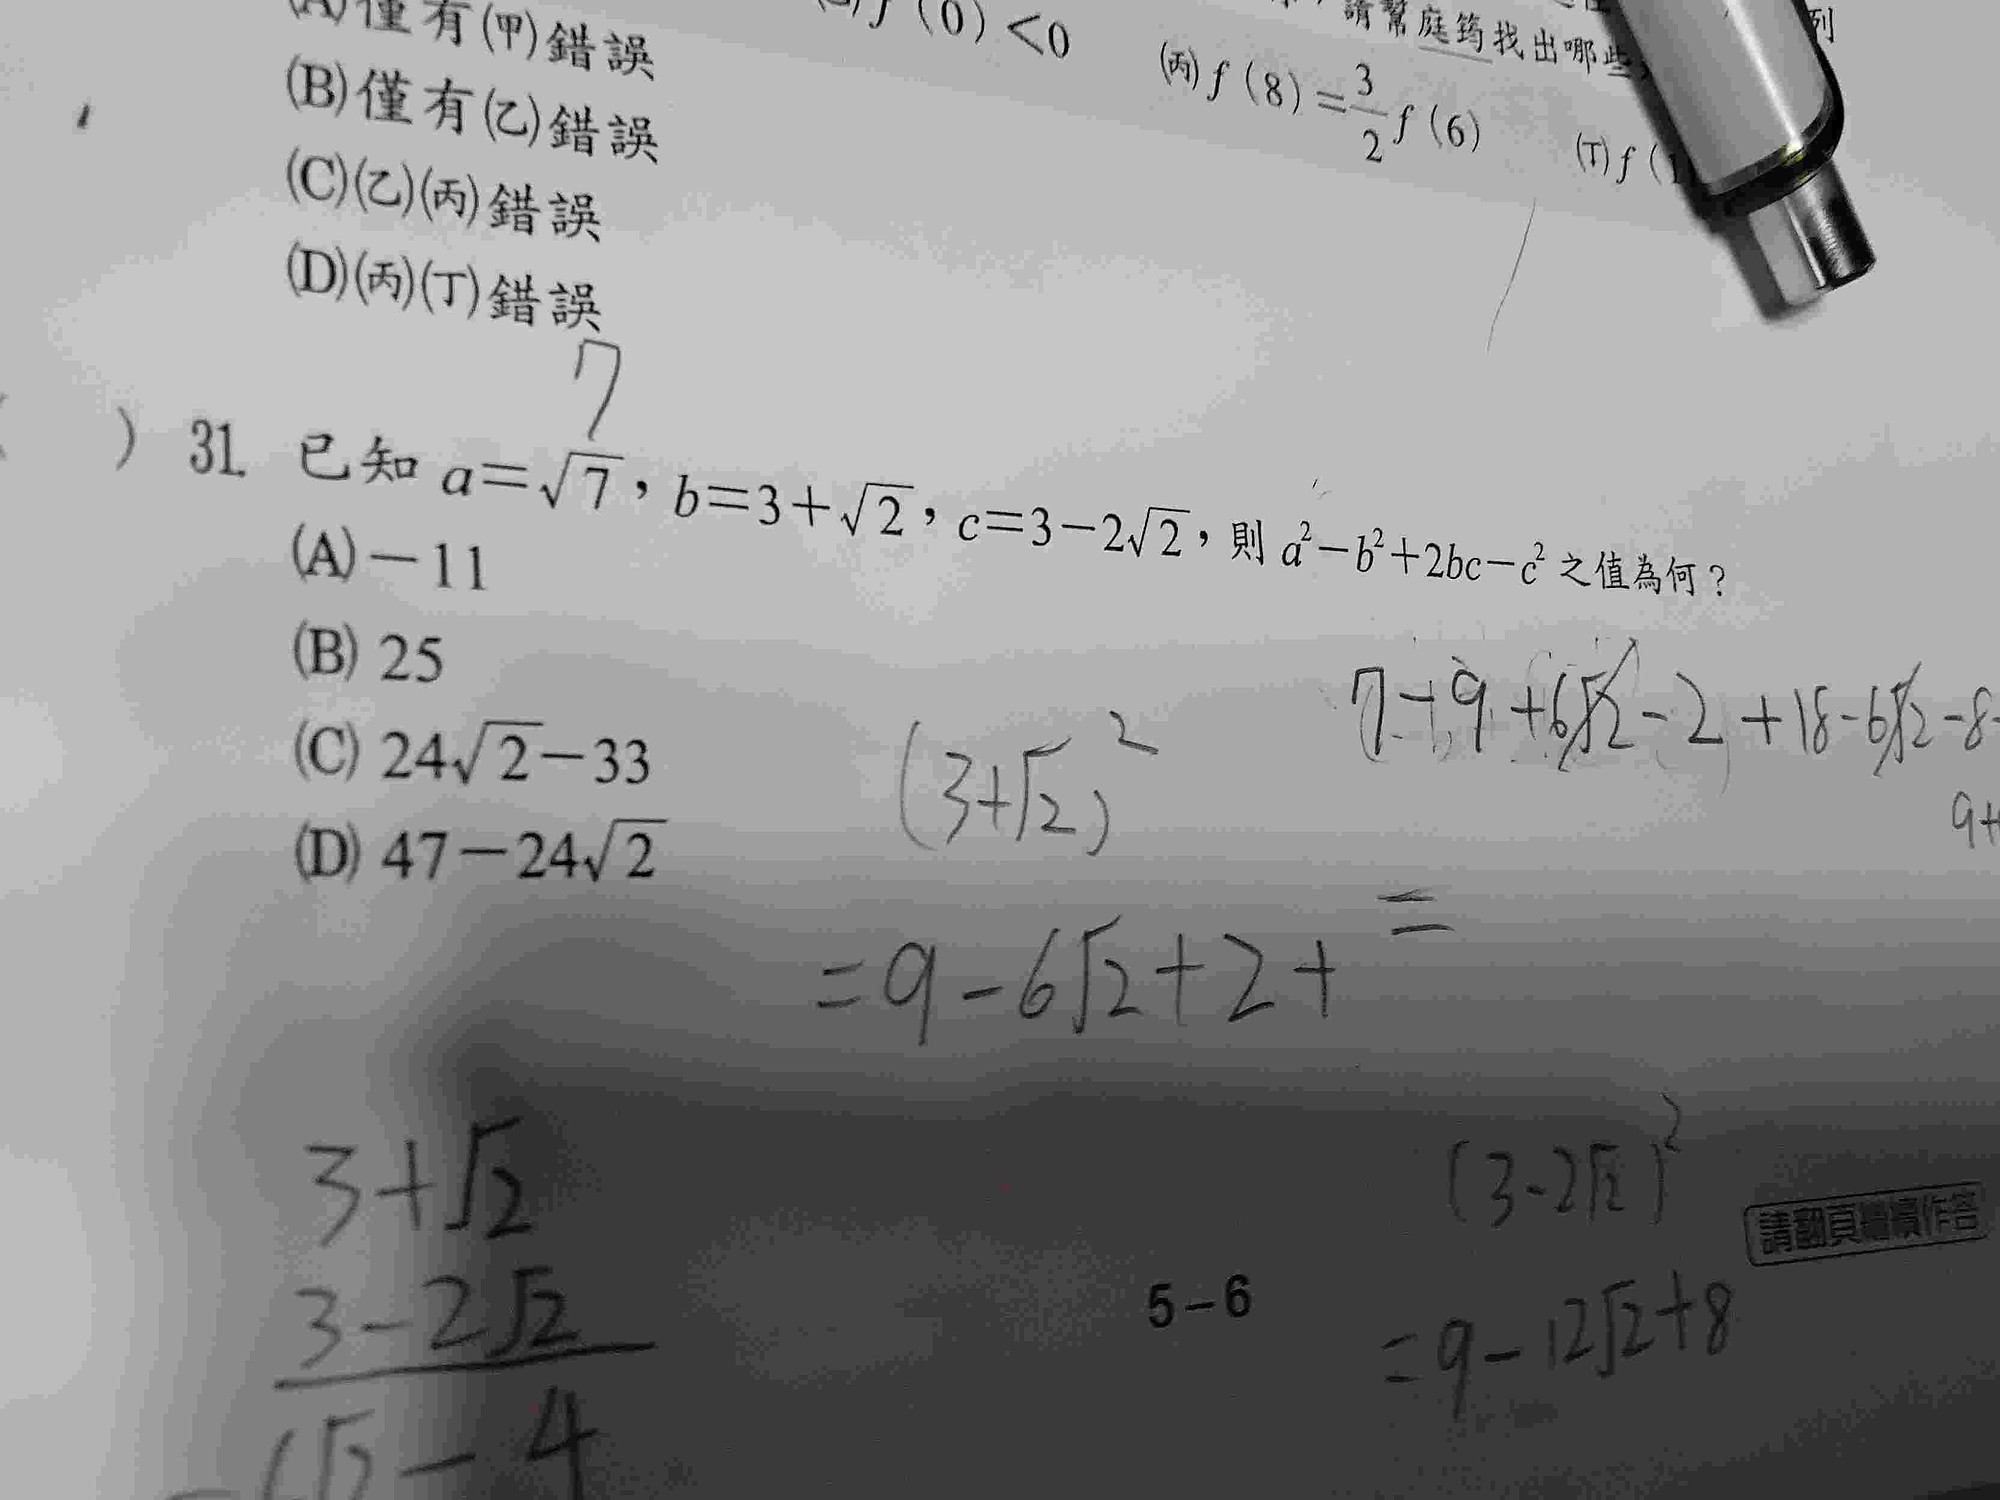 (A)僅有(甲)錯誤
(B)僅有(乙)錯誤
(C)(乙)(丙)錯誤
(D)(丙)(丁)錯誤
f(0)<0
請幫庭筠找出哪些
列
(丙)f(8)=3/2 f(6)
(丁)f(1
7
31. 已知 a=√7,b=3+√2,c=3-2√2,則 a²-b²+2bc-c² 之值為何?
(A)-11
(B) 25
(C) 24√2-33
(D) 47-24√2
7-9+6√2-2+18-6√2-8-
9+
(3+√2)²
=9-6√2+2+
=
3+√2
3-2√2
√2-4
(3-2√2)²
=9-12√2+8
請翻頁繼續作答
5-6